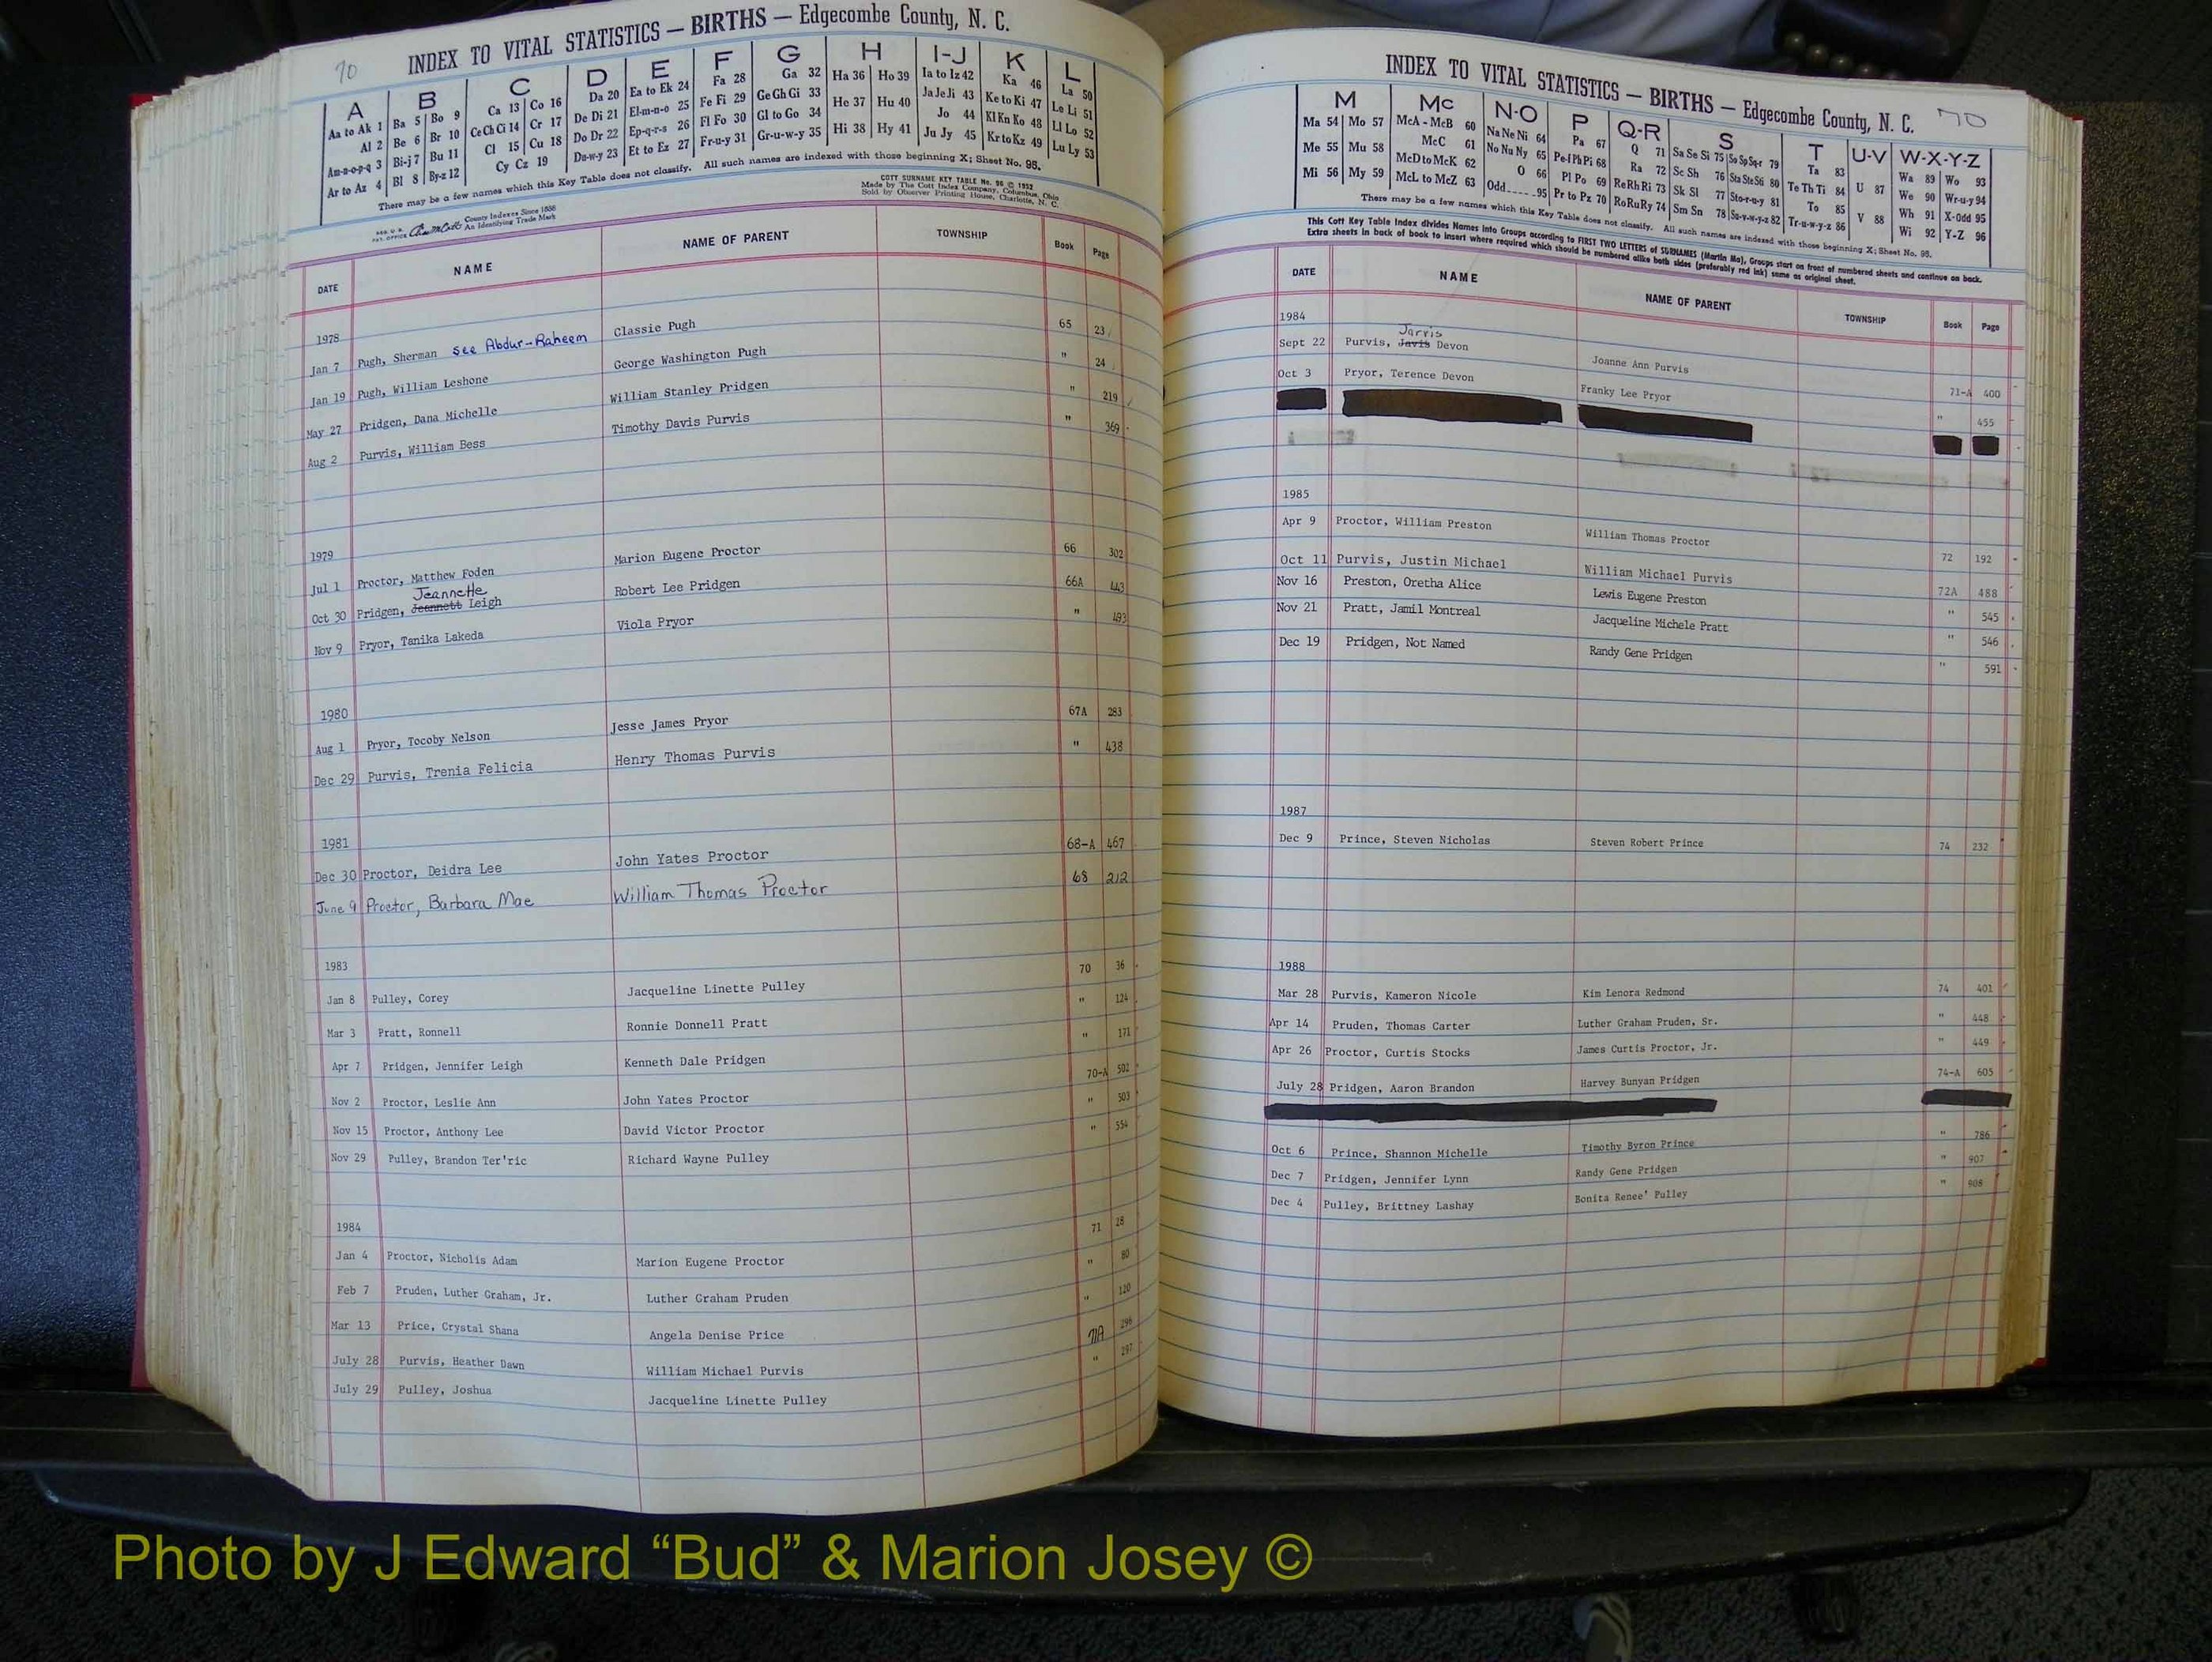 70
INDEX TO VITAL STATISTICS — BIRTHS — Edgecombe County, N. C.
A B C D E F G H I-J K L
Aa to Ak 1 Ba 5 Bo 9 Ca 13 Co 16 Da 20 Ea to Ek 24 Fa 28 Ga 32 Ha 36 Ho 39 Ia to Iz 42 Ka 46 La 50
Al 2 Be 6 Br 10 Ce Ch Ci 14 Cr 17 De Di 21 El-m-n-o 25 Fe Fi 29 Ge Gh Gi 33 He 37 Hu 40 Ja Je Ji 43 Ke to Ki 47 Le Li 51
Am-n-o-p-q 3 Bi-j 7 Bu 11 Cl 15 Cu 18 Do Dr 22 Ep-q-r-s 26 Fl Fo 30 Gl to Go 34 Hi 38 Hy 41 Jo 44 Kl Kn Ko 48 Ll Lo 52
Ar to Az 4 Bl 8 By-z 12 Cy Cz 19 Du-w-y 23 Et to Ez 27 Fr-u-y 31 Gr-u-w-y 35 Ju Jy 45 Kr to Kz 49 Lu Ly 53
There may be a few names which this Key Table does not classify. All such names are indexed with those beginning X; Sheet No. 95.
COTT SURNAME KEY TABLE No. 96 © 1952
Made by The Cott Index Company, Columbus, Ohio
Sold by Observer Printing House, Charlotte, N. C.
County Indexes Since 1888
An Identifying Trade Mark
DATE NAME NAME OF PARENT TOWNSHIP Book Page
1978
Jan 7 Pugh, Sherman See Abdur-Raheem Classie Pugh 65 23
Jan 19 Pugh, William Leshone George Washington Pugh " 24
May 27 Pridgen, Dana Michelle William Stanley Pridgen " 219
Aug 2 Purvis, William Bess Timothy Davis Purvis " 369
1979
Jul 1 Proctor, Matthew Foden Marion Eugene Proctor 66 302
Jeannette
Oct 30 Pridgen, Jeannett Leigh Robert Lee Pridgen 66A 443
Nov 9 Pryor, Tanika Lakeda Viola Pryor " 493
1980
Aug 1 Pryor, Tocoby Nelson Jesse James Pryor 67A 283
Dec 29 Purvis, Trenia Felicia Henry Thomas Purvis " 438
1981
Dec 30 Proctor, Deidra Lee John Yates Proctor 68-A 467
June 9 Proctor, Barbara Mae William Thomas Proctor 68 212
1983
Jan 8 Pulley, Corey Jacqueline Linette Pulley 70 36
Mar 3 Pratt, Ronnell Ronnie Donnell Pratt " 124
Apr 7 Pridgen, Jennifer Leigh Kenneth Dale Pridgen " 171
Nov 2 Proctor, Leslie Ann John Yates Proctor 70-A 502
Nov 15 Proctor, Anthony Lee David Victor Proctor " 503
Nov 29 Pulley, Brandon Ter'ric Richard Wayne Pulley " 554
1984
Jan 4 Proctor, Nicholis Adam Marion Eugene Proctor 71 28
Feb 7 Pruden, Luther Graham, Jr. Luther Graham Pruden " 80
Mar 13 Price, Crystal Shana Angela Denise Price " 120
July 28 Purvis, Heather Dawn William Michael Purvis 71A 296
July 29 Pulley, Joshua Jacqueline Linette Pulley " 297
INDEX TO VITAL STATISTICS — BIRTHS — Edgecombe County, N. C. 70
M Mc N-O P Q-R S T U-V W-X-Y-Z
Ma 54 Mo 57 McA - McB 60 Na Ne Ni 64 Pa 67 Q 71 Sa Se Si 75 So Sp Sq-r 79 Ta 83 U 87 Wa 89 Wo 93
Me 55 Mu 58 McC 61 No Nu Ny 65 Pe-f Ph Pi 68 Ra 72 Sc Sh 76 Sta Ste Sti 80 Te Th Ti 84 V 88 We 90 Wr-u-y 94
Mi 56 My 59 McD to McK 62 O 66 Pl Po 69 Re Rh Ri 73 Sk Sl 77 Sto-r-u-y 81 To 85 Wh 91 X-Odd 95
McL to McZ 63 Odd 95 Pr to Pz 70 Ro Ru Ry 74 Sm Sn 78 Su-v-w-y-z 82 Tr-u-w-y-z 86 Wi 92 Y-Z 96
There may be a few names which this Key Table does not classify. All such names are indexed with those beginning X; Sheet No. 95.
This Cott Key Table Index divides Names into Groups according to FIRST TWO LETTERS of SURNAMES (Martin Ma), Groups start on front of numbered sheets and continue on back.
Extra sheets in back of book to insert where required which should be numbered alike both sides (preferably red ink) same as original sheet.
DATE NAME NAME OF PARENT TOWNSHIP Book Page
1984
Jarvis
Sept 22 Purvis, Javis Devon Joanne Ann Purvis 71-A 400
Oct 3 Pryor, Terence Devon Franky Lee Pryor " 455
1985
Apr 9 Proctor, William Preston William Thomas Proctor 72 192
Oct 11 Purvis, Justin Michael William Michael Purvis 72A 488
Nov 16 Preston, Oretha Alice Lewis Eugene Preston " 545
Nov 21 Pratt, Jamil Montreal Jacqueline Michele Pratt " 546
Dec 19 Pridgen, Not Named Randy Gene Pridgen " 591
1987
Dec 9 Prince, Steven Nicholas Steven Robert Prince 74 232
1988
Mar 28 Purvis, Kameron Nicole Kim Lenora Redmond 74 401
Apr 14 Pruden, Thomas Carter Luther Graham Pruden, Sr. " 448
Apr 26 Proctor, Curtis Stocks James Curtis Proctor, Jr. " 449
July 28 Pridgen, Aaron Brandon Harvey Bunyan Pridgen 74-A 605
Oct 6 Prince, Shannon Michelle Timothy Byron Prince " 786
Dec 7 Pridgen, Jennifer Lynn Randy Gene Pridgen " 907
Dec 4 Pulley, Brittney Lashay Bonita Renee' Pulley " 908
Photo by J Edward “Bud” & Marion Josey ©